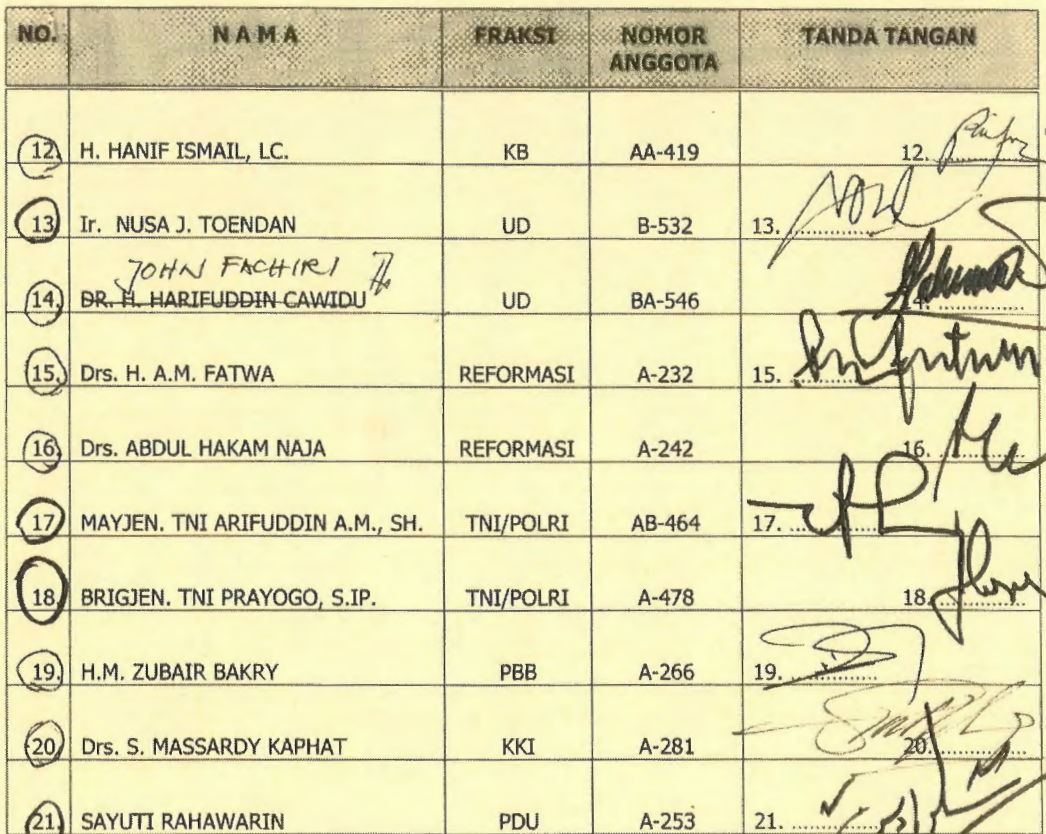 NO. NAMA FRAKSI NOMOR ANGGOTA TANDA TANGAN
12. H. HANIF ISMAIL, LC. KB AA-419 12. ............
13. Ir. NUSA J. TOENDAN UD B-532 13. ............
JOHN FACHIRI
14. DR. H. HARIFUDDIN CAWIDU UD BA-546 14. ............
15. Drs. H. A.M. FATWA REFORMASI A-232 15. ............
16. Drs. ABDUL HAKAM NAJA REFORMASI A-242 16. ............
17. MAYJEN. TNI ARIFUDDIN A.M., SH. TNI/POLRI AB-464 17. ............
18. BRIGJEN. TNI PRAYOGO, S.IP. TNI/POLRI A-478 18. ............
19. H.M. ZUBAIR BAKRY PBB A-266 19. ............
20. Drs. S. MASSARDY KAPHAT KKI A-281 20. ............
21. SAYUTI RAHAWARIN PDU A-253 21. ............